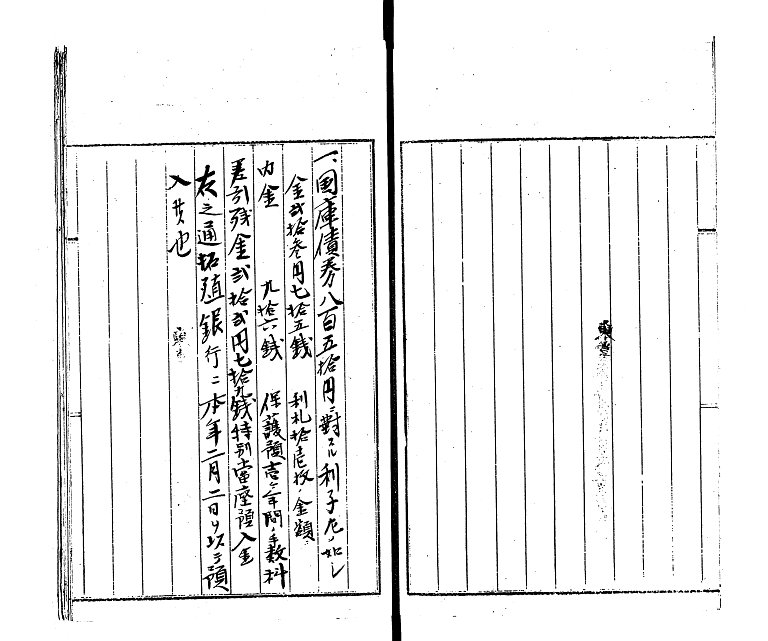 一、国庫債券八百五拾円ニ対スル利子左ノ如シ
金弐拾参円七拾五銭 利札拾壱枚ノ金額
内金 九拾六銭 保護預壱ヶ年間ノ手数料
差引残金弐拾弐円七拾九銭特別当座預入金
右之通拓殖銀行ニ本年二月二日ヲ以テ預
入済也